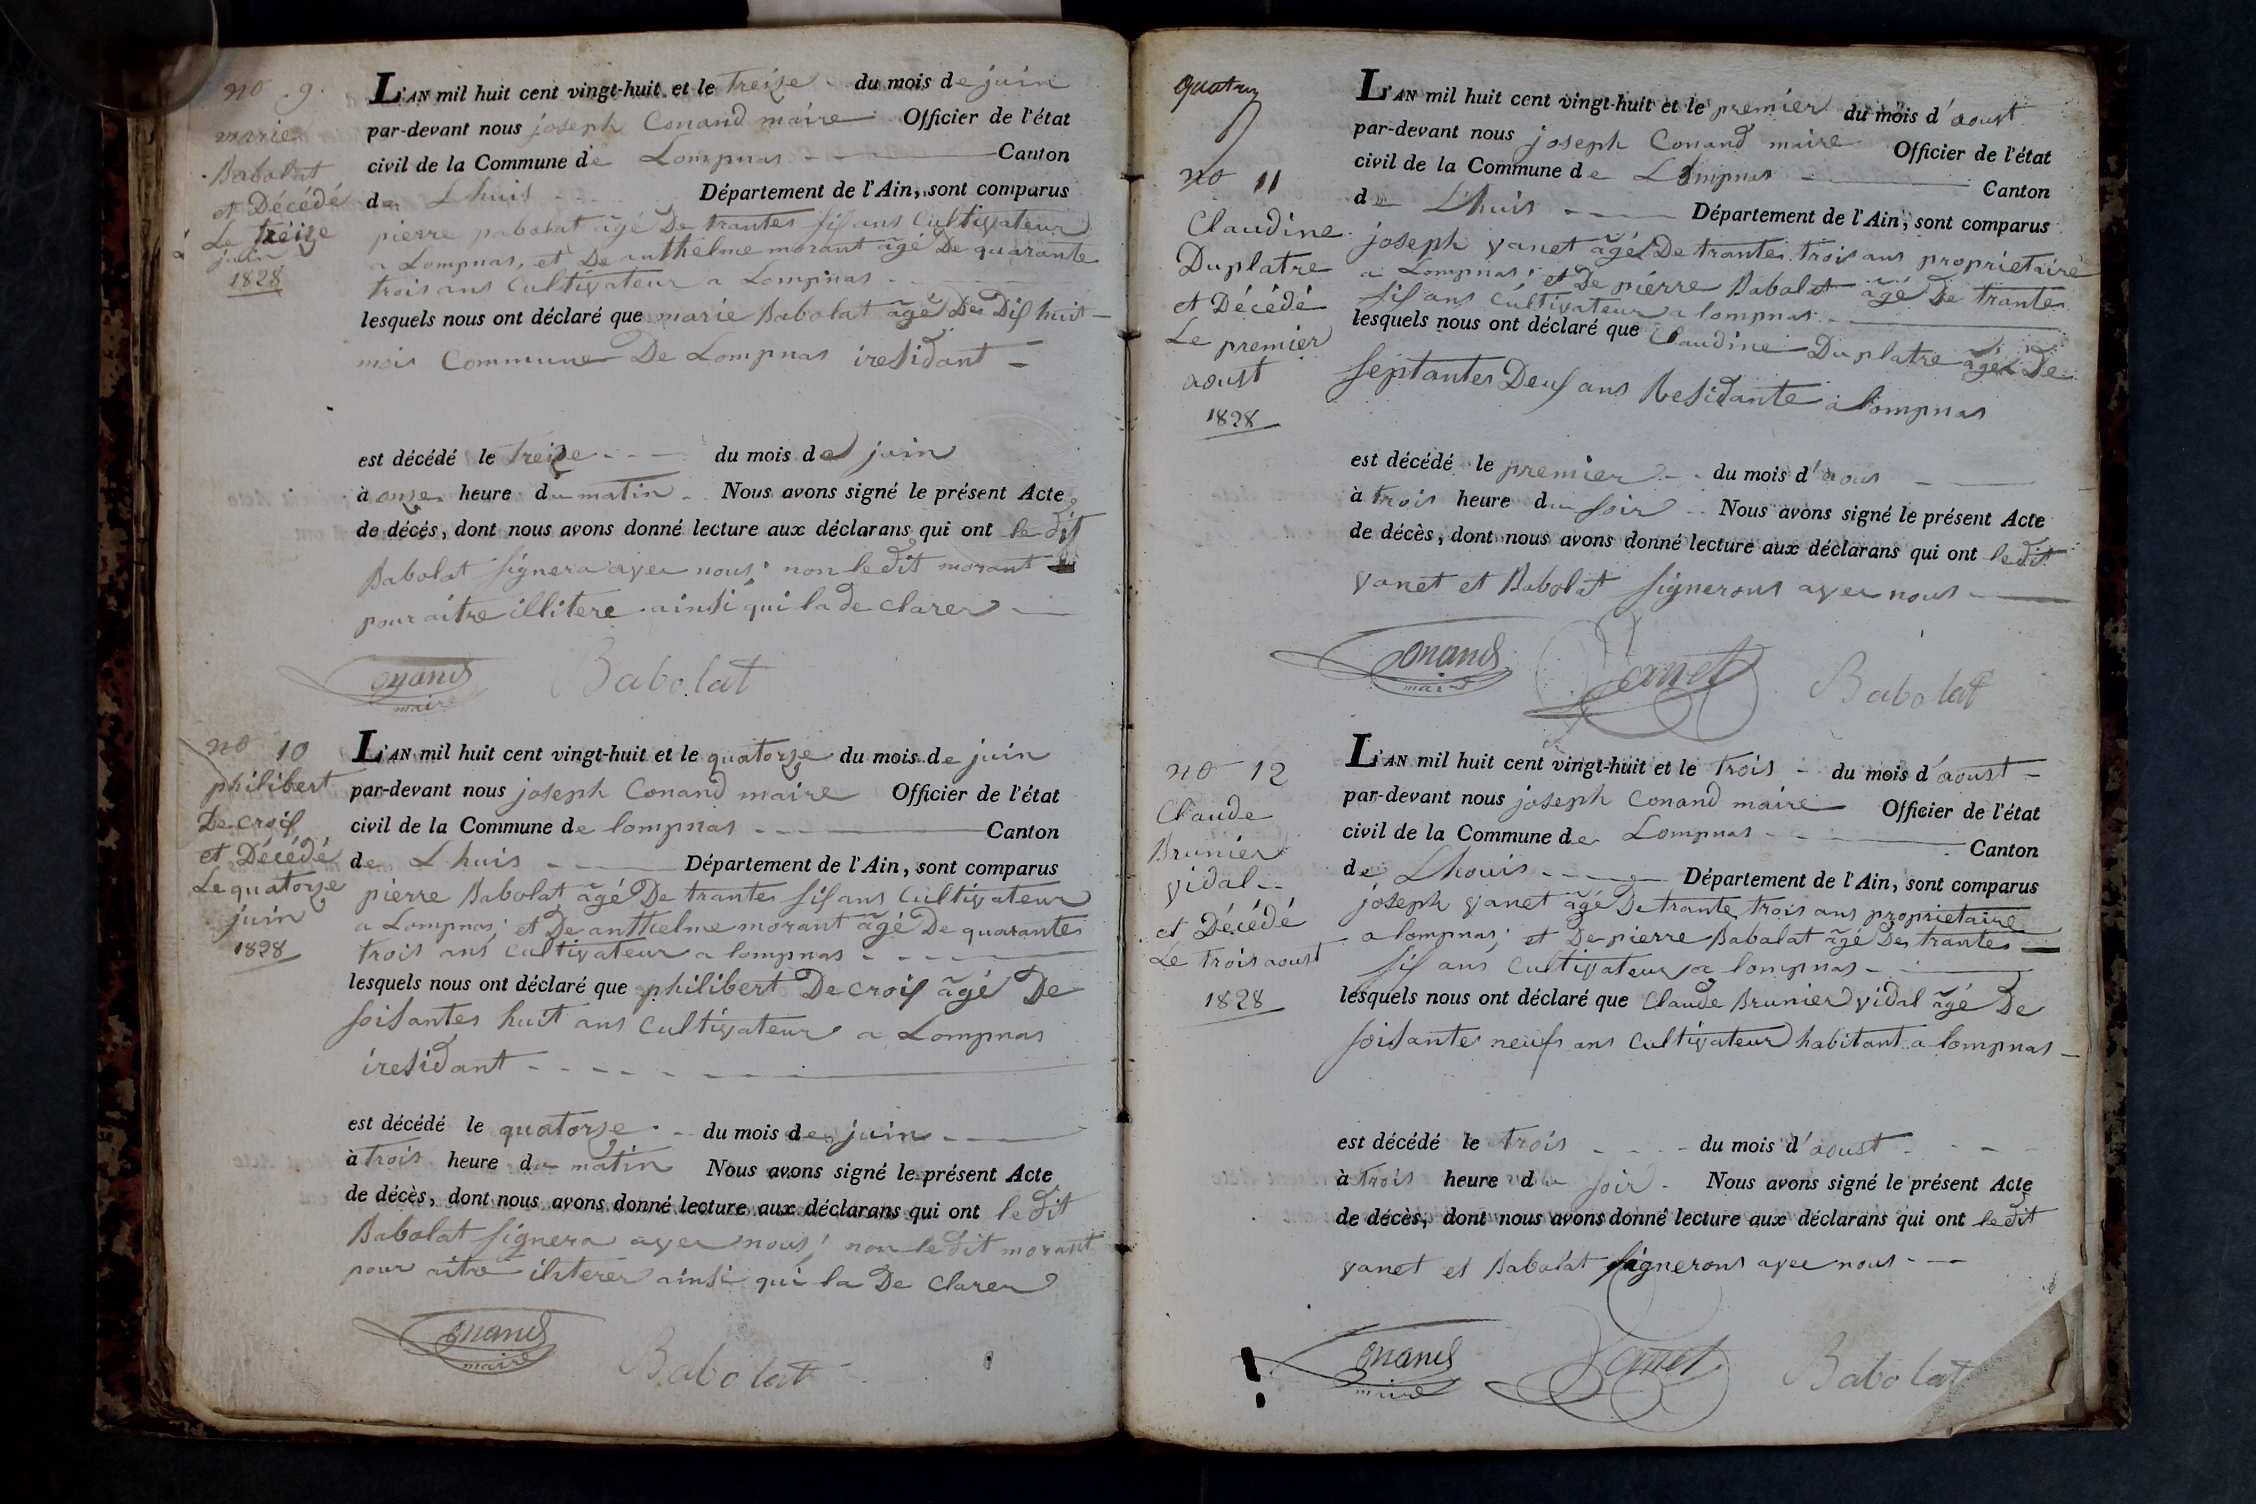 no 9.
marie
Babolat
et Décédé
Le treize
juin
1828
L'AN mil huit cent vingt-huit et le treize du mois de juin
par-devant nous joseph Conand maire Officier de l'état
civil de la Commune de Lompnas Canton
de Lhuis Département de l'Ain, sont comparus
pierre pabolat âgé De trantes sis ans Cultivateur
a Lompnas, et De anthelme morant âgé De quarante
trois ans Cultivateur a Lompnas
lesquels nous ont déclaré que marie Babolat âgé Des Dis huit
mois Commune De Lompnas iresidant
est décédé le treize du mois de juin
à onze heure du matin Nous avons signé le présent Acte
de décès, dont nous avons donné lecture aux déclarans qui ont le dit
Babolat signera avec nous; non le dit morant
pour aitre illitere ainsi qui la de clarer
Conand
maire
Babolat
no 10
philibert
Decrois
et Décédé
Le quatorze
juin
1828
L'AN mil huit cent vingt-huit et le quatorze du mois de juin
par-devant nous joseph Conand maire Officier de l'état
civil de la Commune de lompnas Canton
de Lhuis Département de l'Ain, sont comparus
pierre Babolat âgé De trantes sis ans Cultivateur
a Lompnas; et De anthelme morant âgé De quarantes
trois ans Cultivateur a lompnas
lesquels nous ont déclaré que philibert Decrois âgé De
soisantes huit ans Cultivateur a Lompnas
iresidant
est décédé le quatorze du mois de juin
à trois heure du matin Nous avons signé le présent Acte
de décès, dont nous avons donné lecture aux déclarans qui ont le dit
Babolat signera avec nous; non le dit morant
pour aitre ainsi qui la De clarer
Conand
maire
Babolat
no 11
Claudine
Duplatre
et Décédé
Le premier
aoust
1828
L'AN mil huit cent vingt-huit et le premier du mois d'aoust
par-devant nous joseph Conand maire Officier de l'état
civil de la Commune de Lompnas Canton
de Lhuis Département de l'Ain, sont comparus
joseph vanet âgé De trantes trois ans proprietaire
a Lompnas; et De piérre Babolat âgé De trantes
sis ans Cultivateur a lompnas
lesquels nous ont déclaré que Claudine Duplatre âgé De
septantes Deus ans Residante a lompnas
est décédé le premier du mois d'aous
à trois heure du soir Nous avons signé le présent Acte
de décès, dont nous avons donné lecture aux déclarans qui ont le dit
vanet et Babolat signerons avec nous
Conand
maire
vanet
Babolat
no 12
Claude
Brunier
vidal
et Décédé
Le trois aoust
1828
L'AN mil huit cent vingt-huit et le trois du mois d'aoust
par-devant nous joseph Conand maire Officier de l'état
civil de la Commune de Lompnas Canton
de Lhouis Département de l'Ain, sont comparus
joseph vanet âgé De trante trois ans proprietaire
a lompnas; et De pierre Babolat âgé Des trantes
sis ans Cultivateur a lompnas
lesquels nous ont déclaré que Claude Brunier vidal âgé De
soisante neufs ans Cultivateur habitant a lompnas
est décédé le trois du mois d'aoust
à trois heure du soir Nous avons signé le présent Acte
de décès, dont nous avons donné lecture aux déclarans qui ont le dit
vanet et Babolat signerons avec nous
Conand
maire
vanet
Babolat